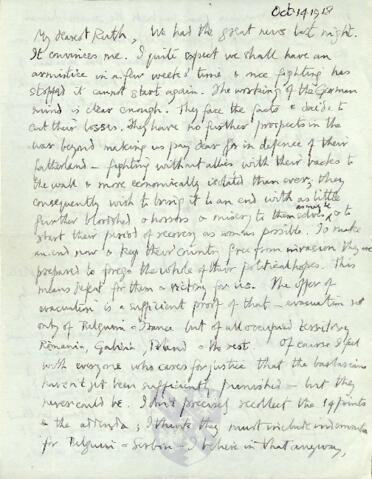 Oct 14 1918
My dearest Ruth, We had the great news last night.
It convinces me. I quite expect we shall have an
armistice in a few weeks' time & once fighting has
stopped it cannot start again. The working of the German
mind is clear enough. They face the facts & decide to
cut their losses. They have no further prospects in the
war beyond making us pay dear for in defence of their
fatherland – fighting without allies with their backs to
the wall & more economically isolated than ever; they
consequently wish to bring it to an end with as little
further bloodshed & horrors & misery to themselves as may be & to
start their period of recovery as soon as possible. To make
an end now & keep their country free from invasion they are
prepared to forego the whole of their political hopes. This
means defeat for them & victory for us. The offer of
evacuation is a sufficient proof of that – evacuation not
only of Belgium & France but of all occupied territory,
Romania, Galicia, Poland & the rest. Of course I feel
with everyone who cares for justice that the barbarians
haven't yet been sufficiently punished – but they
never could be. I don't precisely recollect the 14 points
& the addenda; I think they must include indemnities
for Belgium & Serbia – I believe in that anyway,